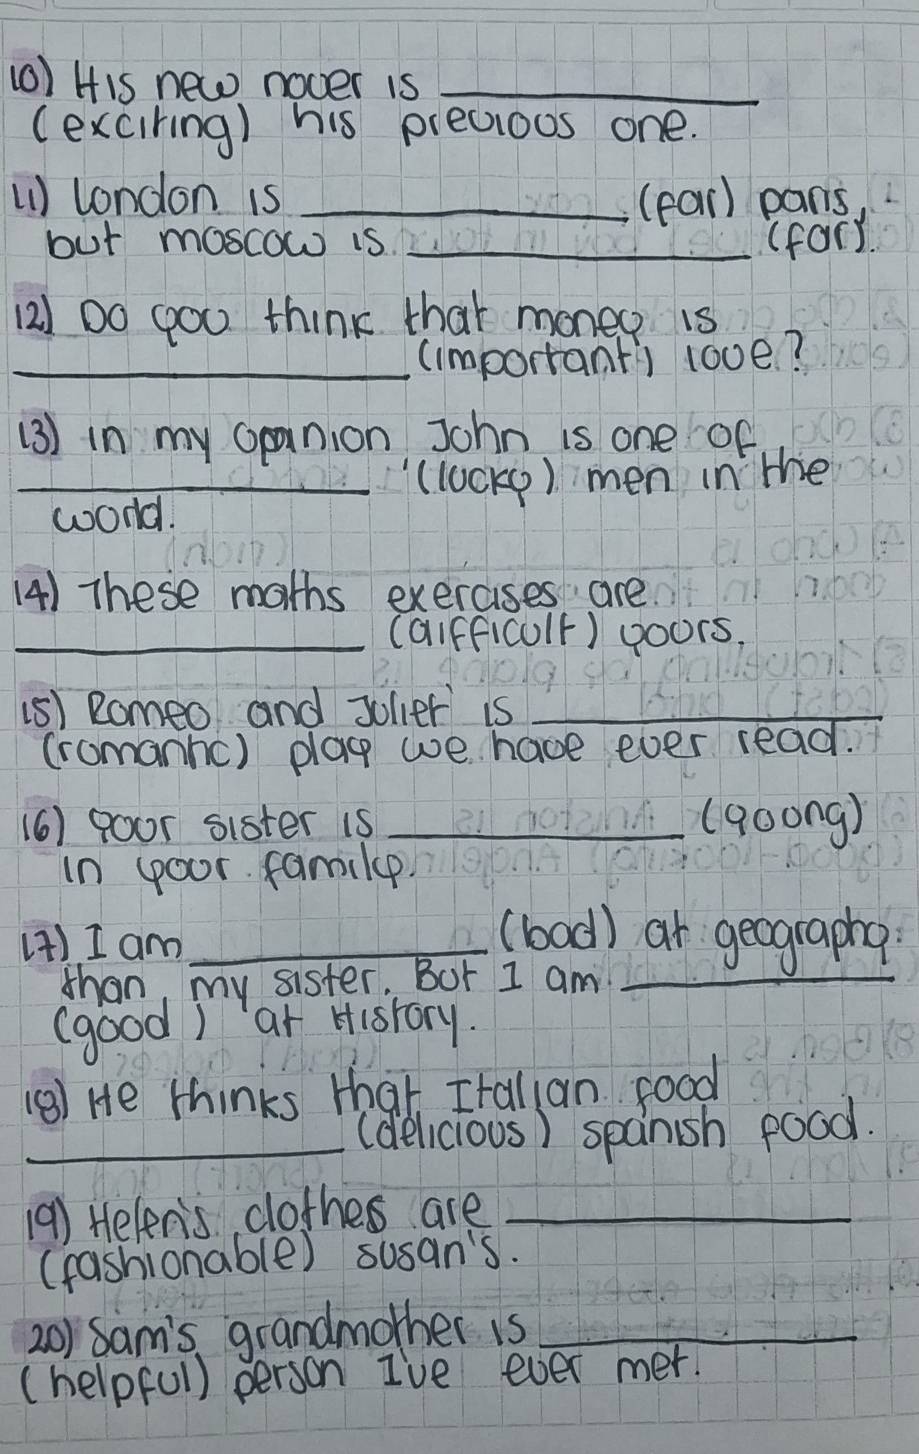 10) His new novel is ____________
(exciting) his previous one.
11) London is ____________ (far) paris,
but moscow is ____________ (far).
12) Do you think that money is
____________ (important) love?
13) in my opinion John is one of
____________ (lucky) men in the
world.
14) These maths exercises are
____________ (difficult) yours.
15) Romeo and Juliet is ____________
(romantic) play we have ever read.
16) your sister is ____________ (young)
in your family.
17) I am ____________ (bad) at geography
than my sister. But I am ____________
(good) at History.
18) He thinks that Italian food
____________ (delicious) spanish food.
19) Helen's clothes are ____________
(fashionable) susan's.
20) Sam's grandmother is ____________
(helpful) person I've ever met.